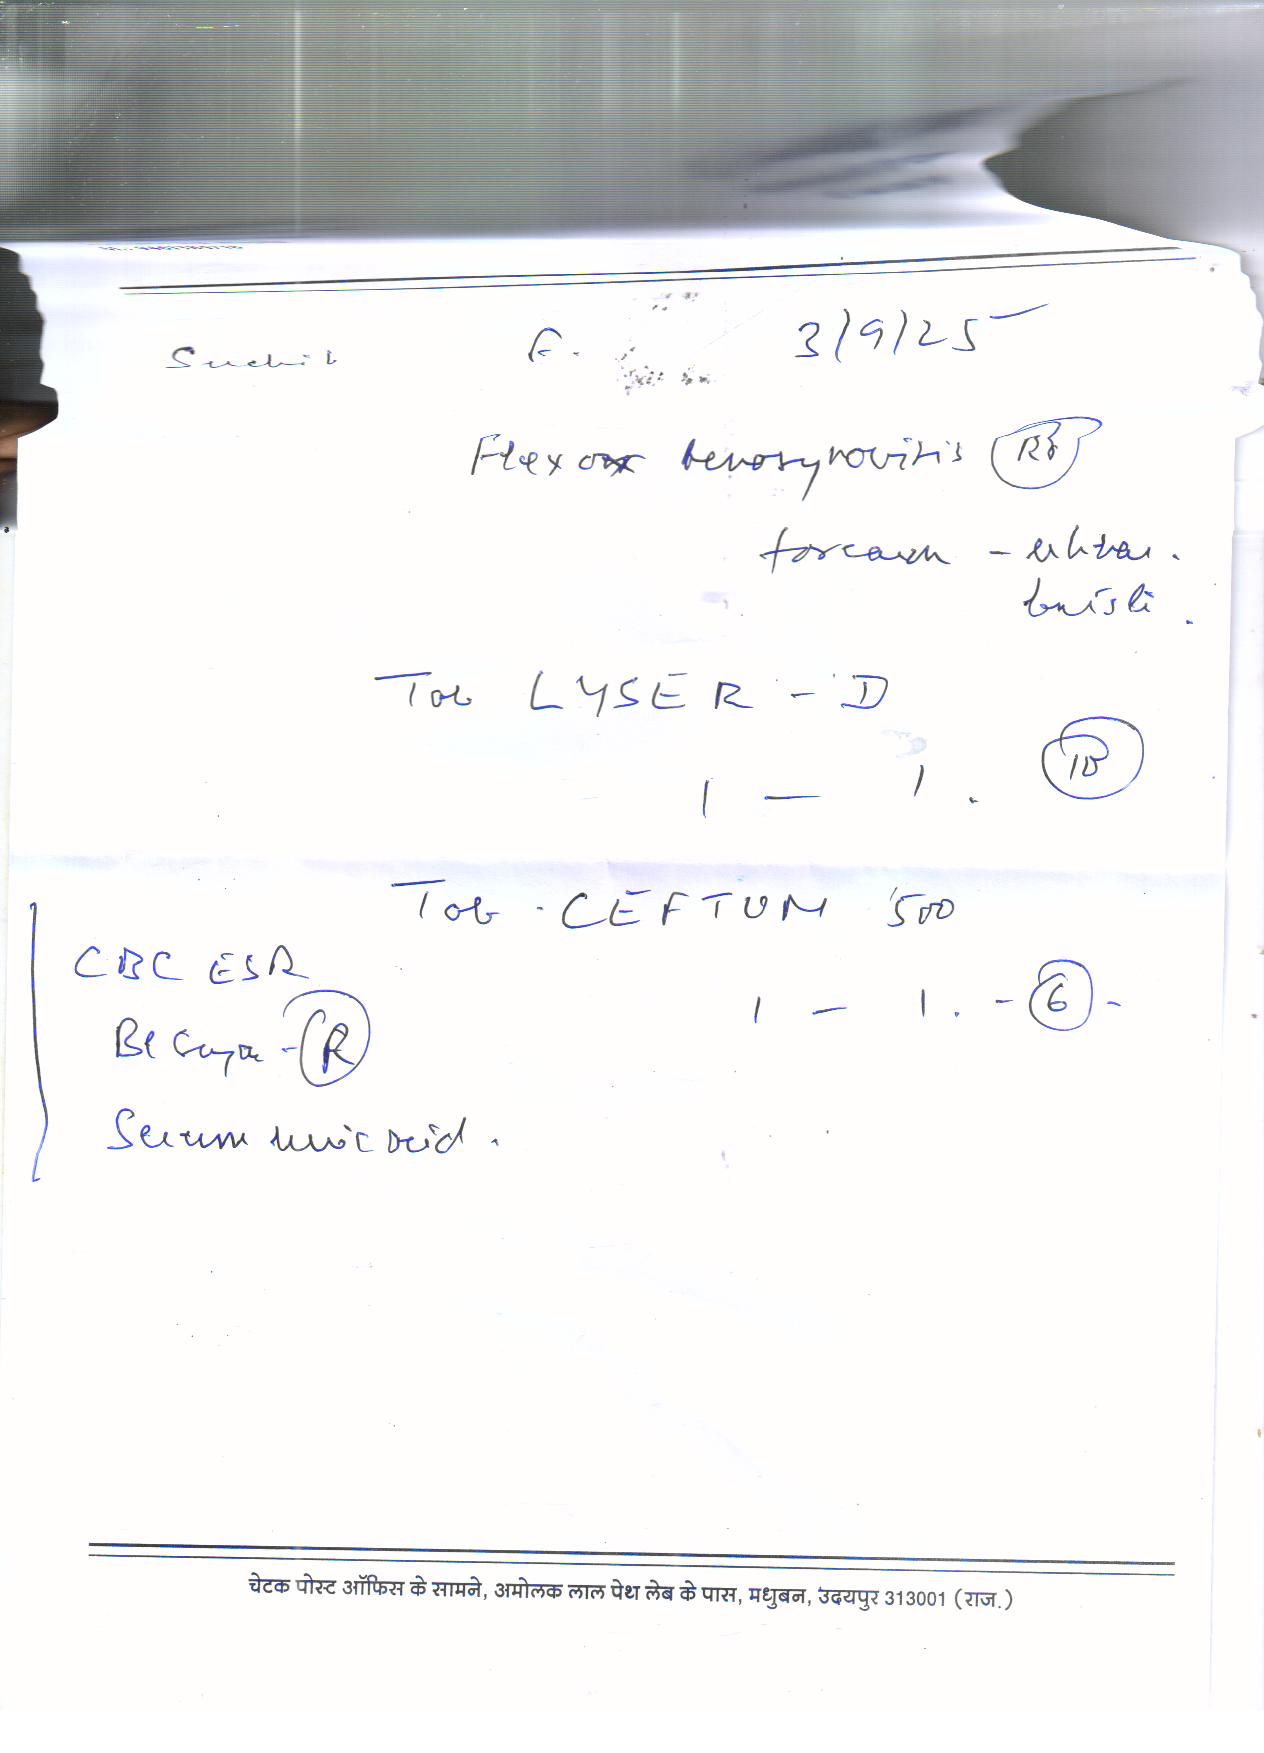 F. 3/9/25
Flexor tenosynovitis Rt
forearm -
Tab LYSER - D
1 — 1. 10
Tab. CEFTUM 500
1 — 1. - 6 -
CBC ESR
Bl - R
Serum uric acid.
चेटक पोस्ट ऑफिस के सामने, अमोलक लाल पेथ लेब के पास, मधुबन, उदयपुर 313001 (राज.)